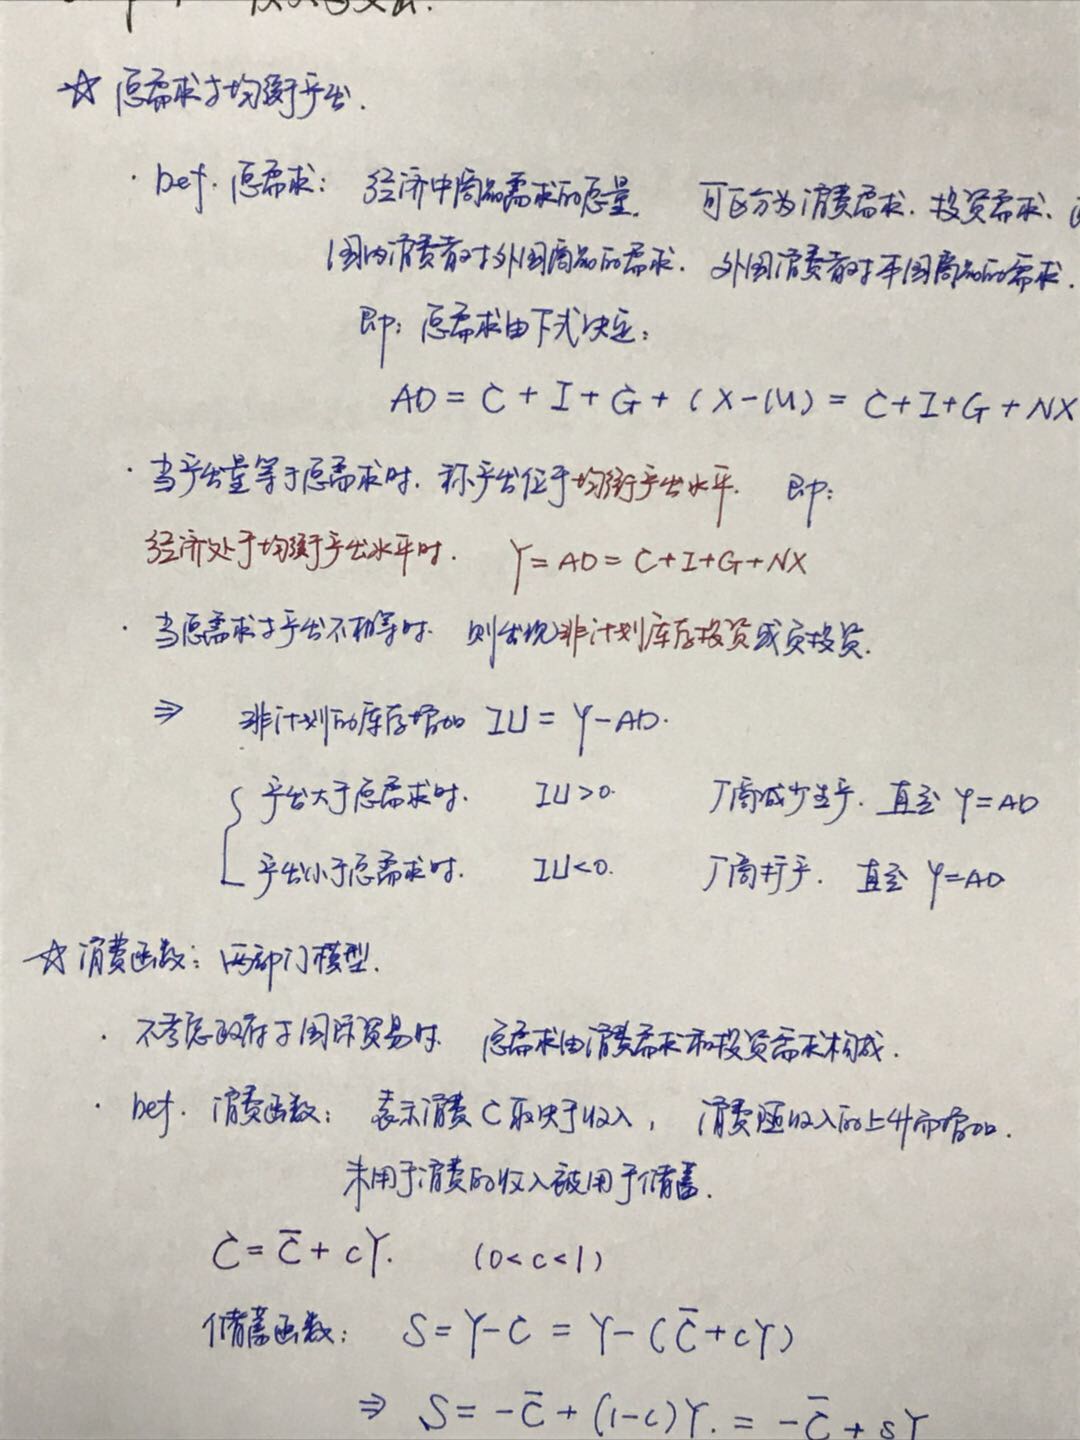 ☆ 总需求与均衡产出.
· Def. 总需求: 经济中商品需求的总量. 可区分为消费需求、投资需求、
国内消费者对外国商品的需求、外国消费者对本国商品的需求.
即: 总需求由下式决定:
AD = C + I + G + (X-IM) = C+I+G+NX
· 当产出量等于总需求时, 称产出位于均衡产出水平. 即:
经济处于均衡产出水平时. Y = AD = C+I+G+NX
· 当总需求与产出不相等时. 则出现非计划库存投资或负投资.
⇒ 非计划的库存增加 IU = Y-AD.
{ 产出大于总需求时. IU>0. 厂商减少生产. 直至 Y=AD
产出小于总需求时. IU<0. 厂商扩产. 直至 Y=AD
☆ 消费函数: 两部门模型.
· 不考虑政府与国际贸易时. 总需求由消费需求和投资需求构成.
· Def. 消费函数: 表示消费 C 取决于收入, 消费随收入的上升而增加.
未用于消费的收入被用于储蓄.
C = C̄ + cY. (0<c<1)
储蓄函数: S = Y-C = Y-(C̄+cY)
⇒ S = -C̄ + (1-c)Y. = -C̄ + sY